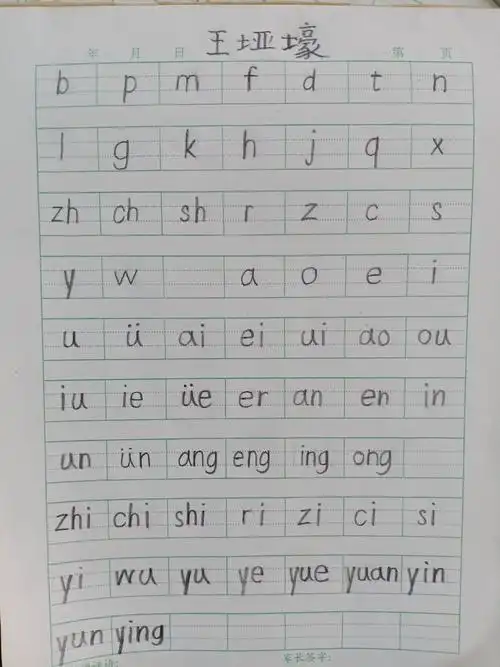 王垭壕
年 月 日 第 页
b p m f d t n
l g k h j q x
zh ch sh r z c s
y w a o e i
u ü ai ei ui ao ou
iu ie üe er an en in
un ün ang eng ing ong
zhi chi shi ri zi ci si
yi wu yu ye yue yuan yin
yun ying
家长签字: